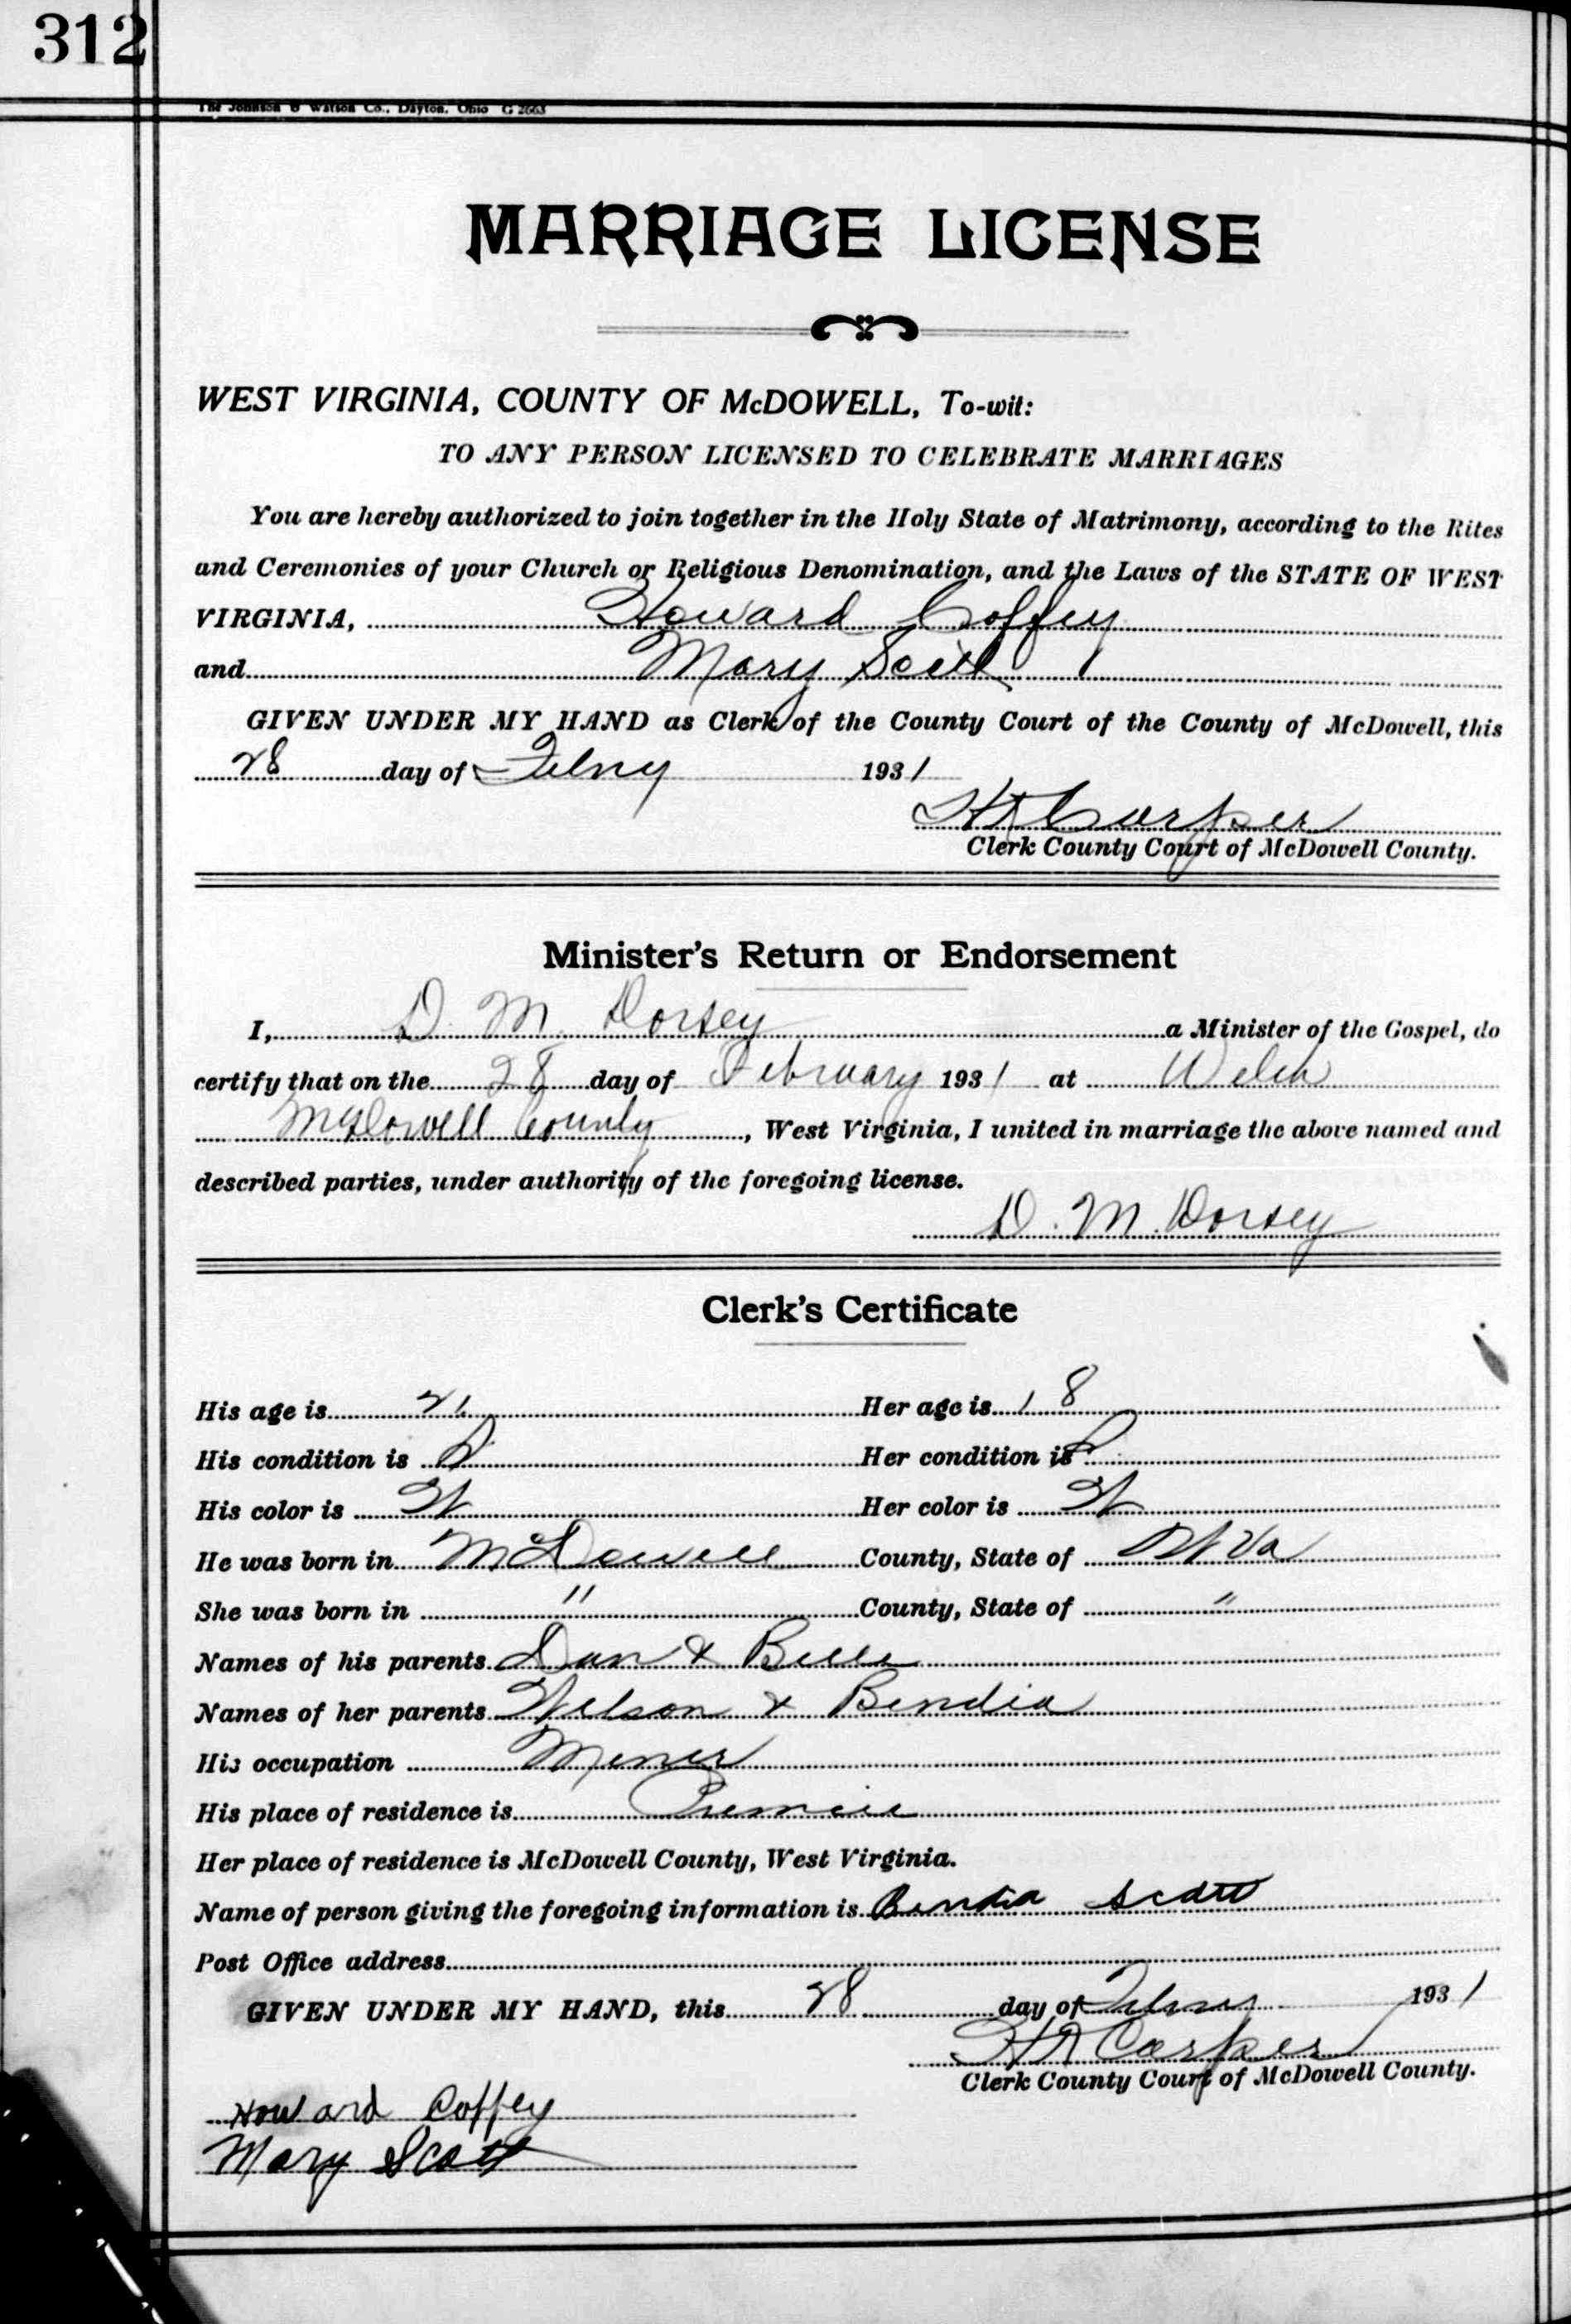 312
The Johnson & Watson Co., Dayton, Ohio G 2663
MARRIAGE LICENSE
WEST VIRGINIA, COUNTY OF McDOWELL, To-wit:
TO ANY PERSON LICENSED TO CELEBRATE MARRIAGES
You are hereby authorized to join together in the Holy State of Matrimony, according to the Rites
and Ceremonies of your Church or Religious Denomination, and the Laws of the STATE OF WEST
VIRGINIA, Howard Coffey
and Mary Scott
GIVEN UNDER MY HAND as Clerk of the County Court of the County of McDowell, this
28 day of Febry 1931
Carper
Clerk County Court of McDowell County.
Minister's Return or Endorsement
I, D. M. Dorsey a Minister of the Gospel, do
certify that on the 28 day of February 1931 at Welch
McDowell County, West Virginia, I united in marriage the above named and
described parties, under authority of the foregoing license.
D. M. Dorsey
Clerk's Certificate
His age is 21 Her age is 18
His condition is S Her condition is S
His color is W Her color is W
He was born in McDowell County, State of W Va
She was born in " County, State of "
Names of his parents Dan & Belle
Names of her parents Wilson & Bendia
His occupation Miner
His place of residence is Premier
Her place of residence is McDowell County, West Virginia.
Name of person giving the foregoing information is Bendia Scott
Post Office address
GIVEN UNDER MY HAND, this 28 day of Febry 1931
Carper
Clerk County Court of McDowell County.
Howard Coffey
Mary Scott